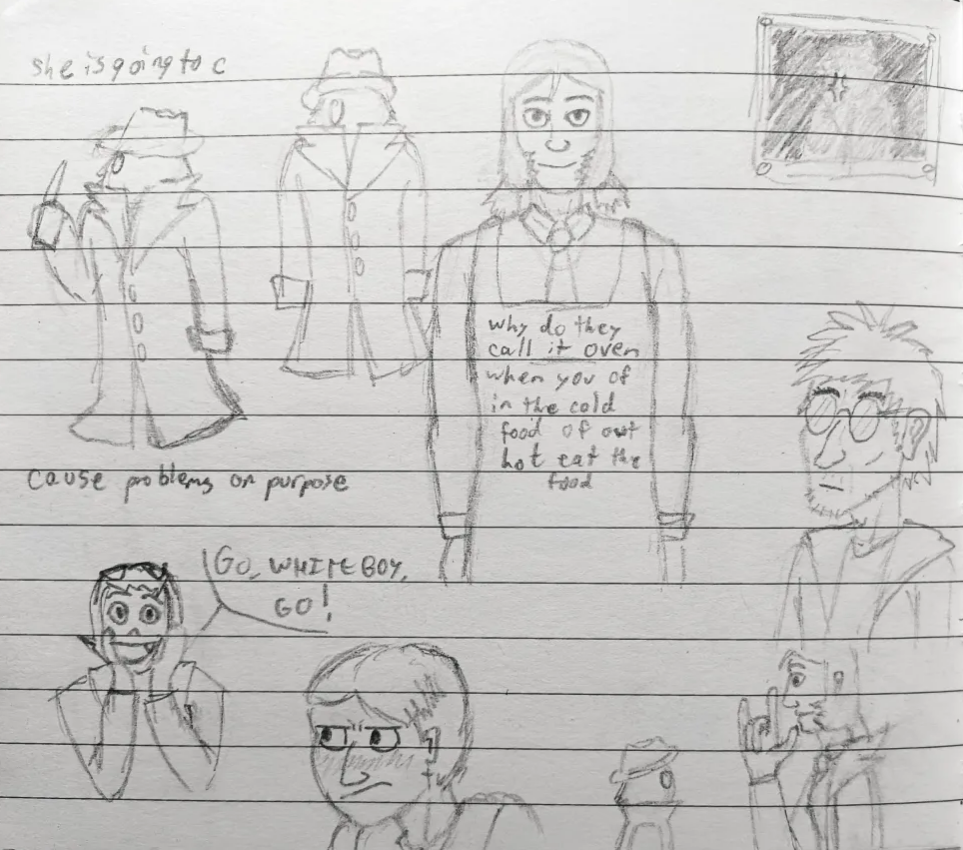 she is going to c
why do they
call it oven
when you of
in the cold
food of out
hot eat the
food
cause problems on purpose
GO, WHITE BOY,
GO!